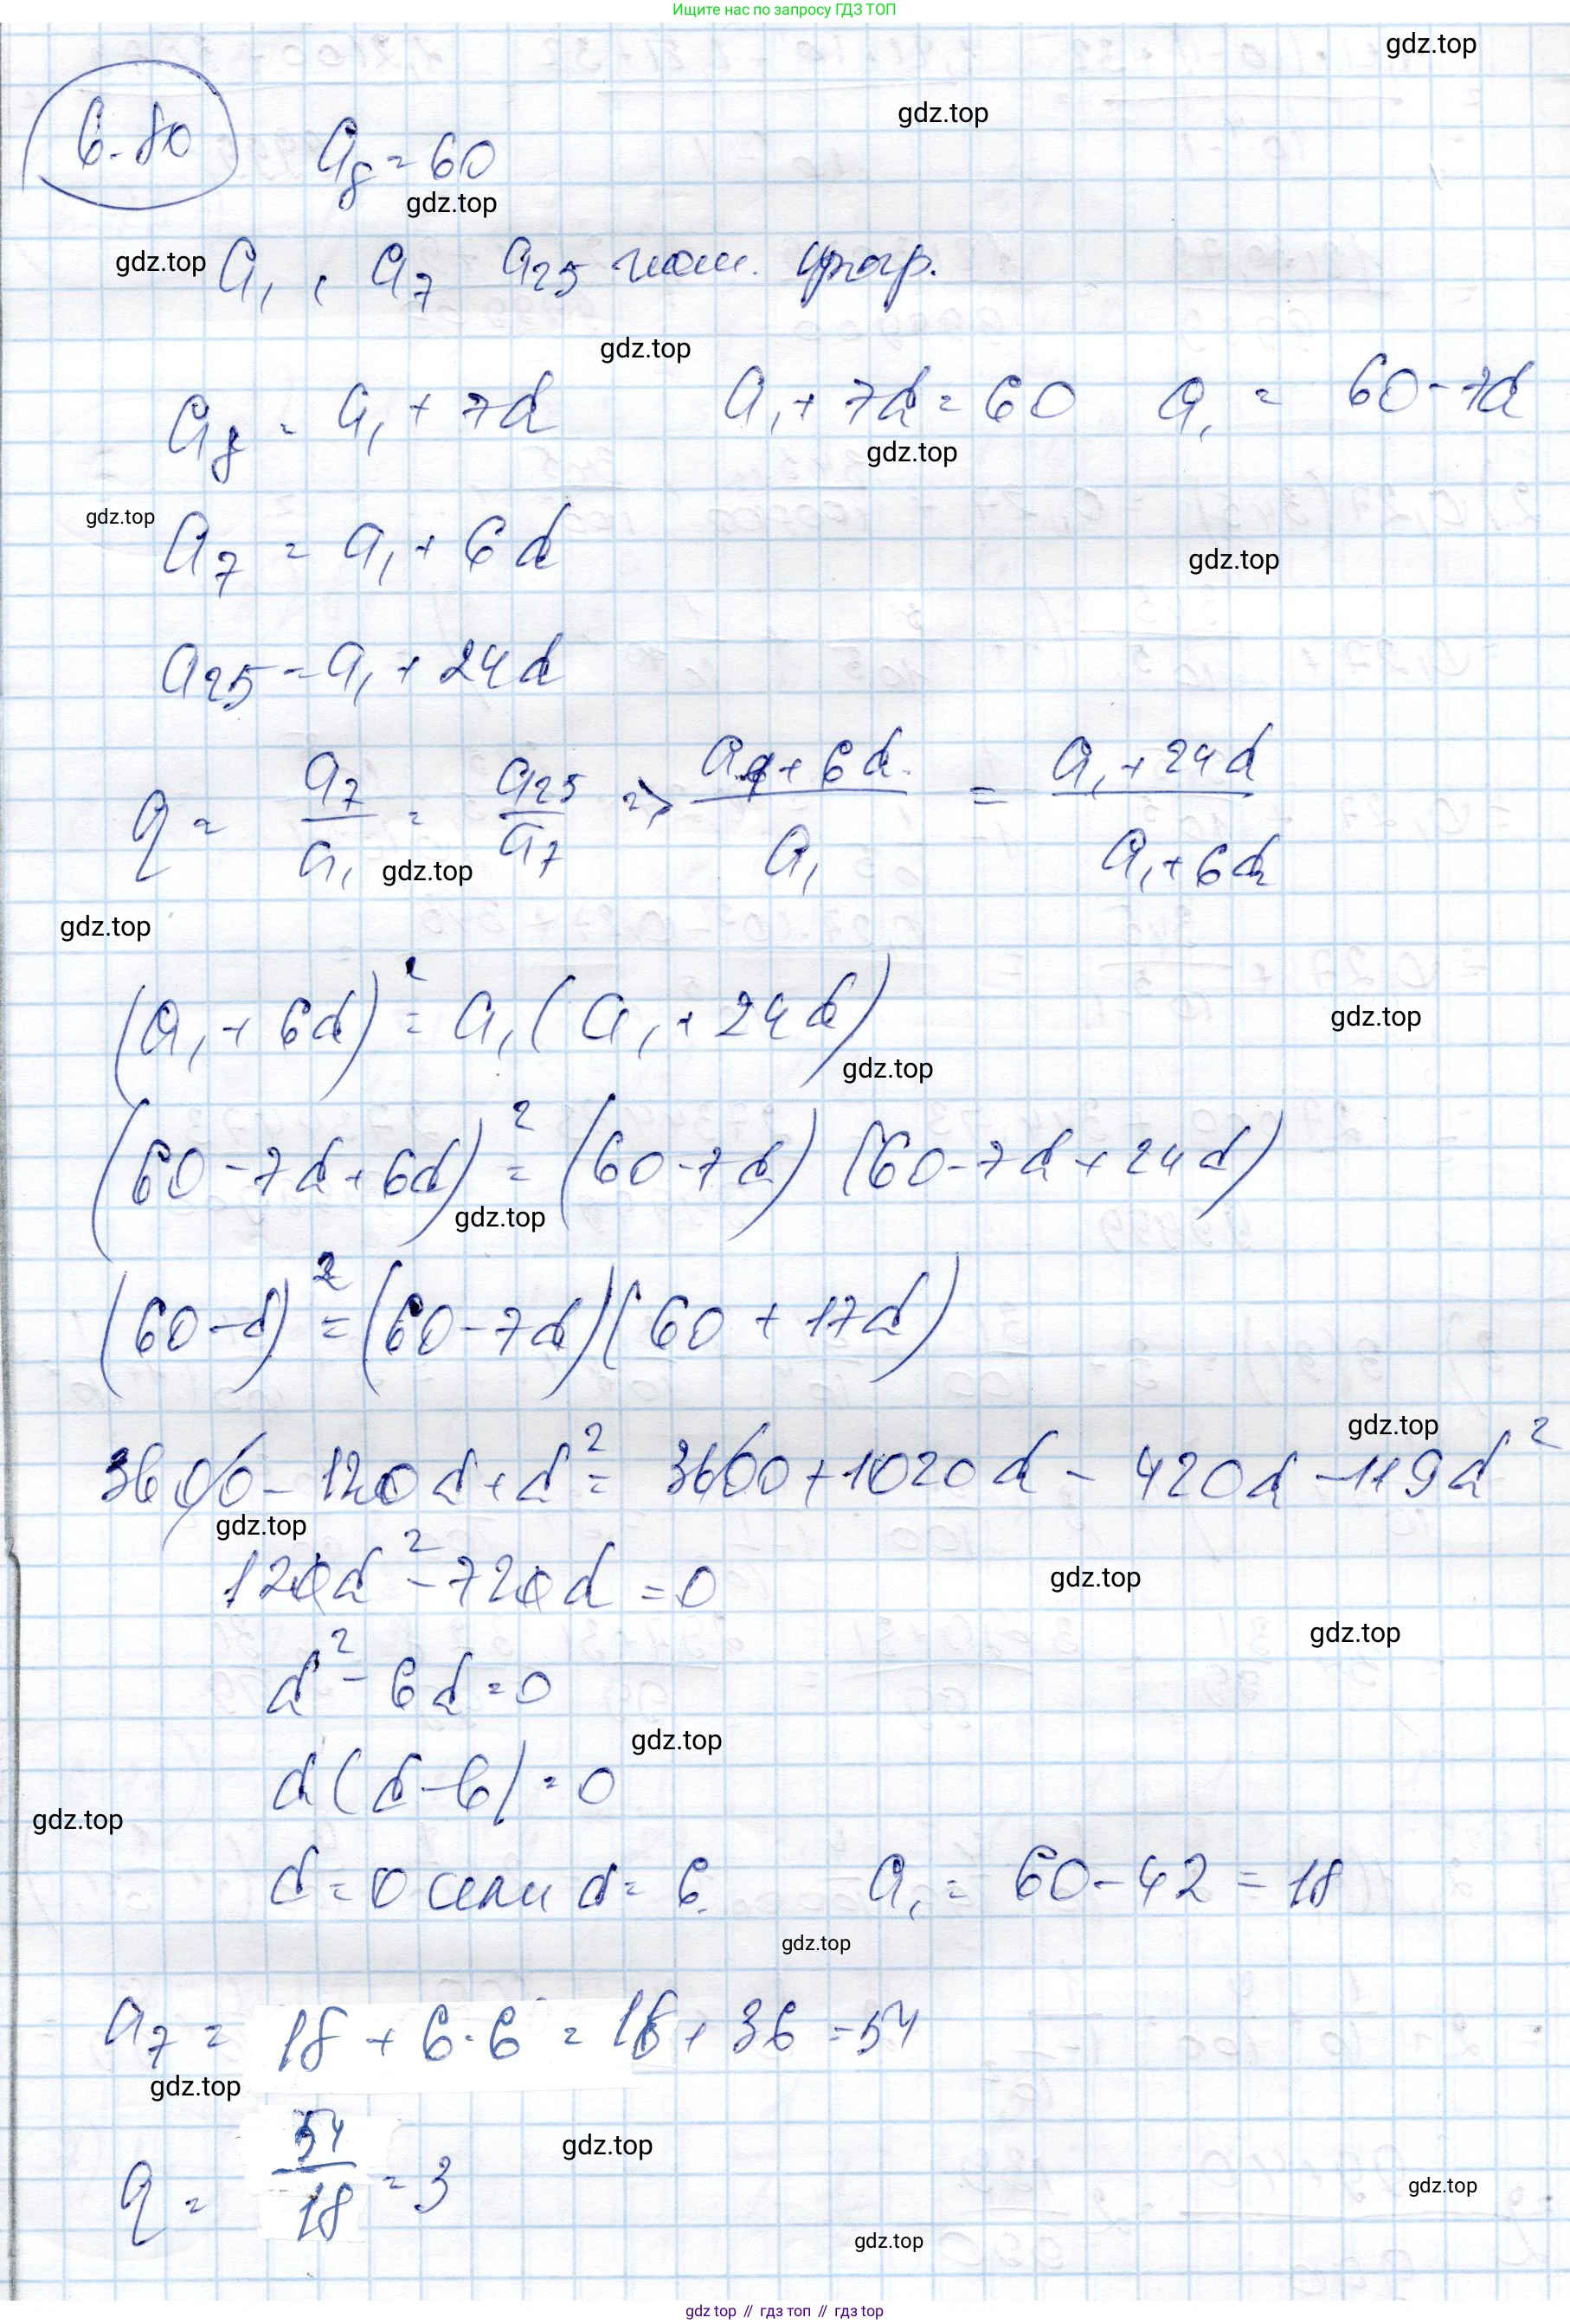 Ищите нас по запросу ГДЗ ТОП
gdz.top
6.80 a₈ = 60
gdz.top
gdz.top
gdz.top a₁, a₇ a₂₅ геом. прогр.
gdz.top
a₈ = a₁ + 7d a₁ + 7d = 60 a₁ = 60 - 7d
gdz.top
gdz.top
a₇ = a₁ + 6d
gdz.top
a₂₅ = a₁ + 24d
q = a₇/a₁ = a₂₅/a₇ => (a₁ + 6d)/a₁ = (a₁ + 24d)/(a₁ + 6d)
gdz.top
gdz.top
(a₁ + 6d)² = a₁(a₁ + 24d)
gdz.top
gdz.top
(60 - 7d + 6d)² = (60 - 7d)(60 - 7d + 24d)
gdz.top
(60 - d)² = (60 - 7d)(60 + 17d)
gdz.top
3600 - 120d + d² = 3600 + 1020d - 420d - 119d²
gdz.top
120d² - 720d = 0
gdz.top
gdz.top
d² - 6d = 0
gdz.top
d(d - 6) = 0
gdz.top
d = 0 или d = 6. a₁ = 60 - 42 = 18
gdz.top
a₇ = 18 + 6·6 = 18 + 36 = 54
gdz.top
q = 54/18 = 3
gdz.top
gdz.top
gdz.top
gdz top // гдз топ // гдз top